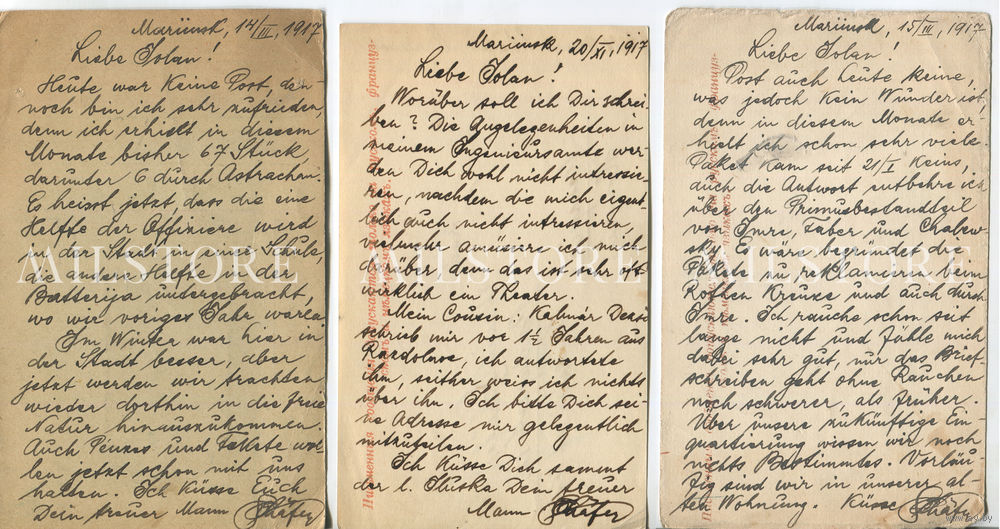 Mariinsk, 14/III, 1917
Liebe Jolan!
Heute war keine Post, den-
noch bin ich sehr zufrieden,
denn ich erhielt in diesem
Monate bisher 67 Stück
darunter 6 durch Astrachan.
Es heisst jetzt, dass die eine
Helfte der Offiziere wird
in der Stadt in eine Schule,
die andere Helfte in der
Batterija untergebracht,
wo wir voriges Jahr waren.
Im Winter war hier in
der Stadt besser, aber
jetzt werden wir trachten
wieder dorthin in die freie
Natur hinauszukommen.
Auch und wol-
len jetzt schon mit uns
halten. Ich Küsse Euch
Dein treuer Mann
Mariinsk, 20/XI, 1917
Liebe Jolan!
Worüber soll ich Dir schrei-
ben? Die Angelegenheiten in
meinem Ingenieursamte wer-
den Dich wohl nicht intressie-
ren, nachdem die mich eigent-
lich auch nicht intressieren,
vielmehr amüsiere ich mich
darüber, denn das ist sehr oft
wirklich ein Theater.
Mein Cousin: Kalmár Dezsö
schrieb mir vor 1½ Jahren aus
Razdolnoe, ich antwortete
ihm, seither weiss ich nichts
über ihn. Ich bitte Dich sei-
ne Adresse mir gelegentlich
mitzuteilen.
Ich Küsse Dich sammt
der l. Iluska Dein treuer
Mann
Mariinsk, 15/III, 1917
Liebe Jolan!
Post auch heute keine,
was jedoch kein Wunder ist,
denn in diesem Monate er-
hielt ich schon sehr viele.
Paket kam seit 21/I keins,
auch die Antwort entbehre ich
über den Primusbestandteil
von Emre, Faber und
Es wäre begründet die
Pakete zu reklamieren beim
Rothen Kreuze und auch durch
Emre. Ich rauche schon seit
lange nicht und fühle mich
dabei sehr gut, nur das Brief-
schreiben geht ohne Rauchen
noch schwerer, als früher.
Über unsere zukünftige Ein-
quartierung wissen wir noch
nichts Bestimmtes. Vorläu-
fig sind wir in unserer al-
ten Wohnung. Küsse
MILSTORE
MILSTORE
MILSTORE